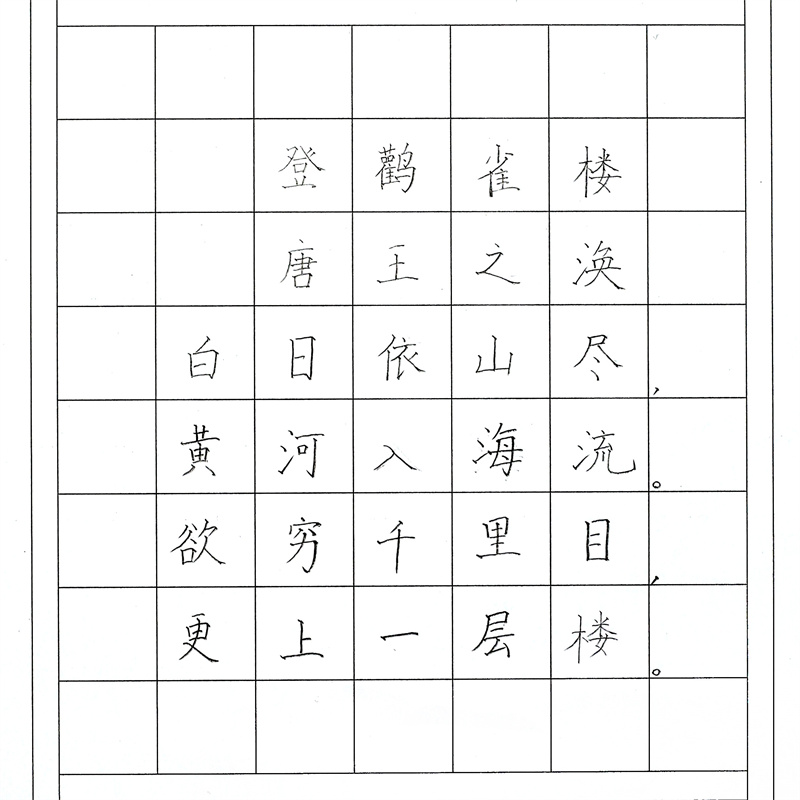 登鹳雀楼
唐王之涣
白日依山尽，
黄河入海流。
欲穷千里目，
更上一层楼。